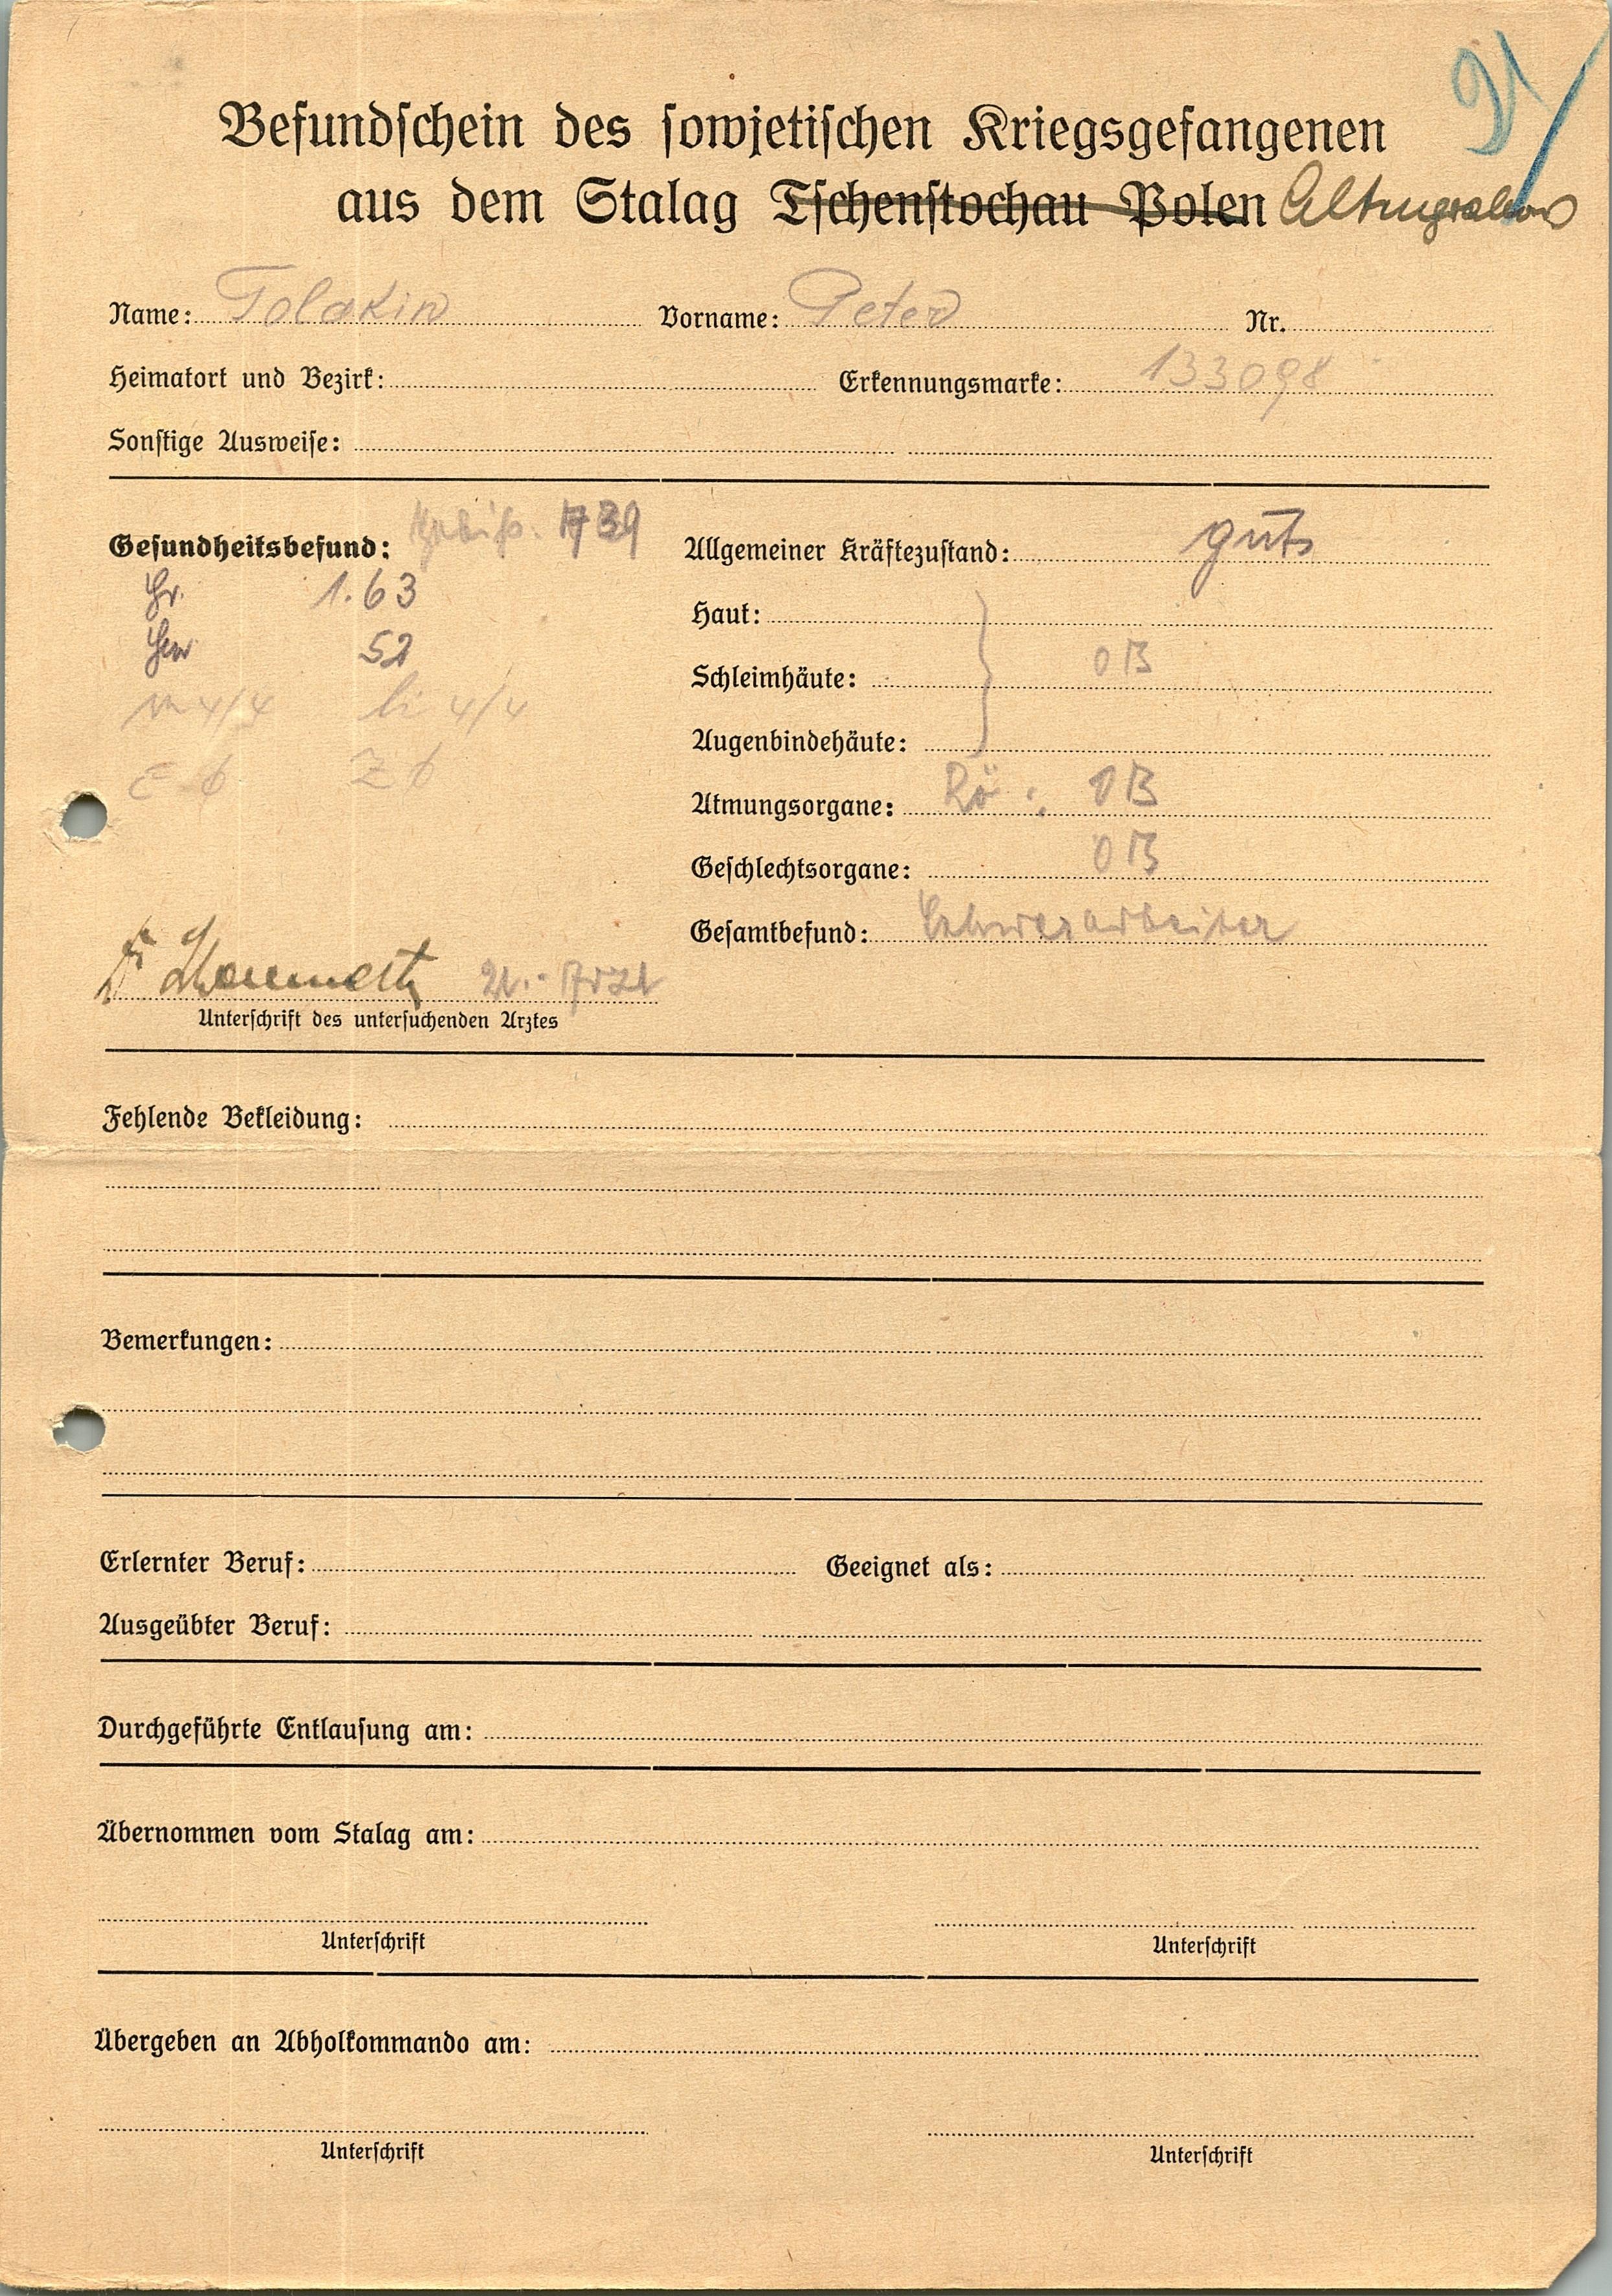 Befundschein des sowjetischen Kriegsgefangenen
aus dem Stalag Tschenstochau Polen Altengrabow
Name: Tolakin Vorname: Peter Nr.
Heimatort und Bezirk: Erkennungsmarke: 133098
Sonstige Ausweise:
Gesundheitsbefund: Allgemeiner Kräftezustand: gut
Gr. 1.63
Haut:
Gew 52
Schleimhäute: oB
4/4 li 4/4
Augenbindehäute:
E ϕ Z ϕ
Atmungsorgane: Rö: oB
Geschlechtsorgane: oB
Gesamtbefund: Schwerarbeiter
Dr
Unterschrift des untersuchenden Arztes
Fehlende Bekleidung:
Bemerkungen:
Erlernter Beruf: Geeignet als:
Ausgeübter Beruf:
Durchgeführte Entlausung am:
Übernommen vom Stalag am:
Unterschrift Unterschrift
Übergeben an Abholkommando am:
Unterschrift Unterschrift